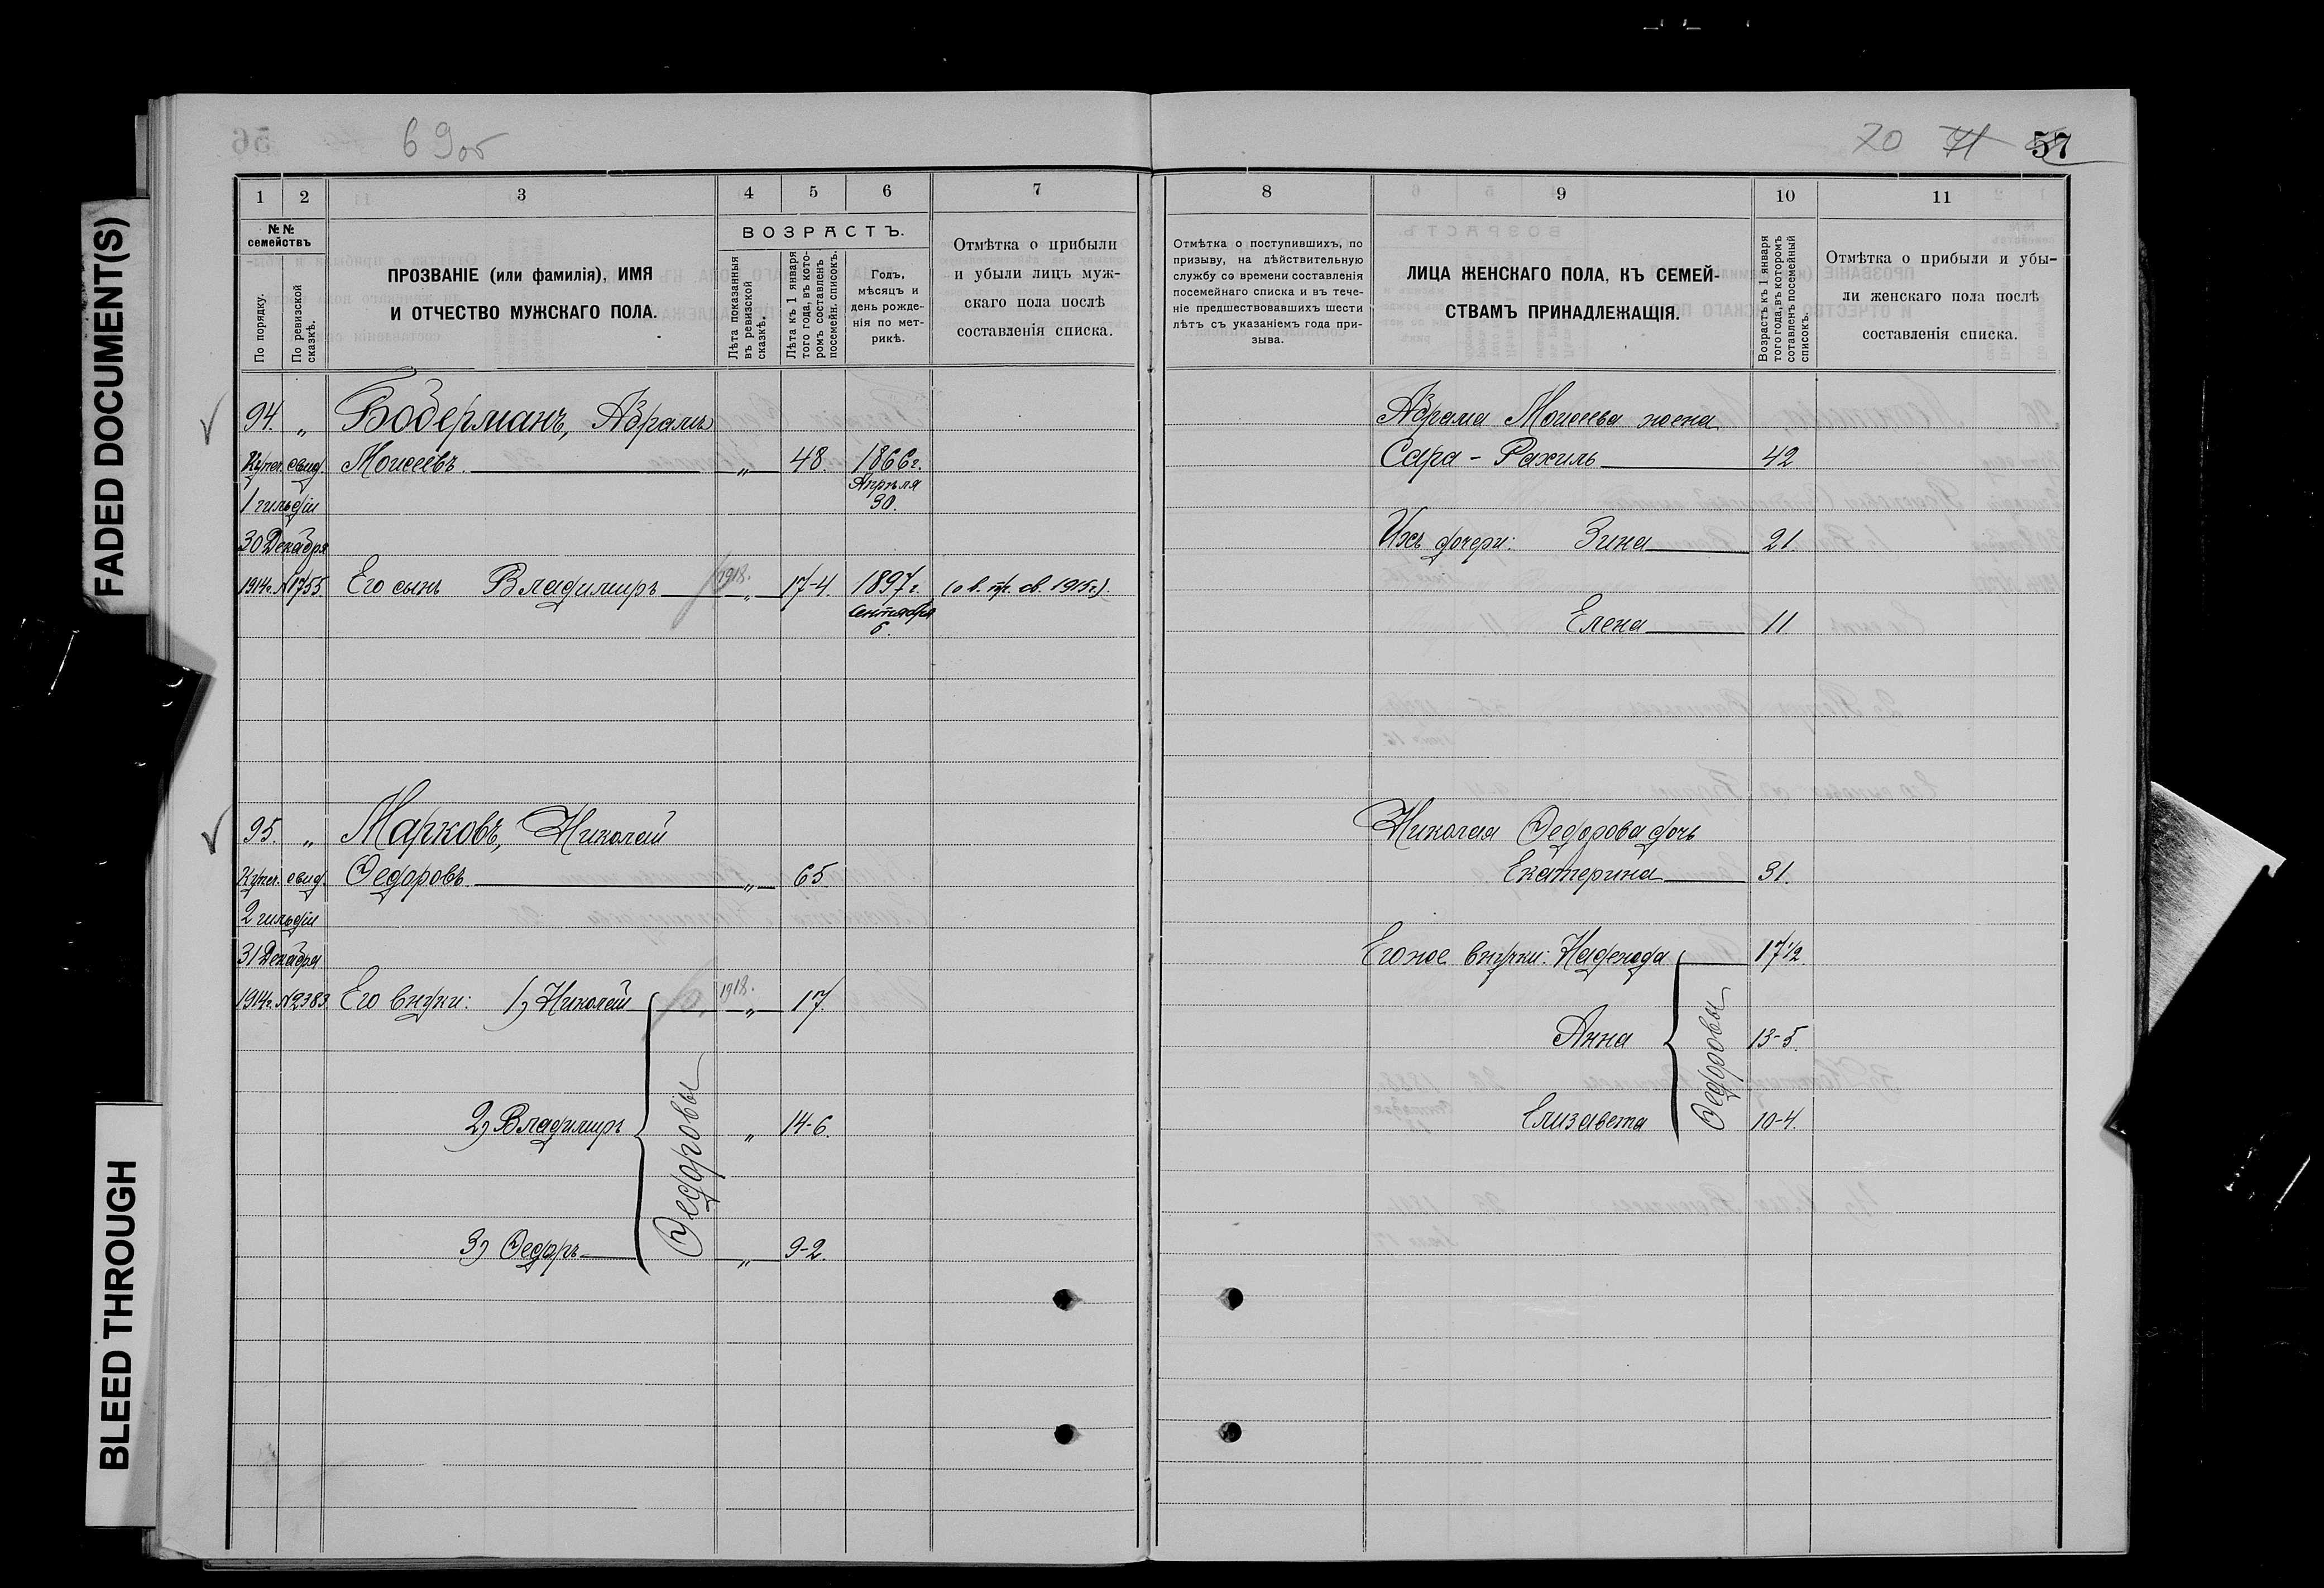 FADED DOCUMENT(S)
BLEED THROUGH
69об
1 2 3 4 5 6 7
№№ семействъ
По порядку.
По ревизской сказкѣ.
ПРОЗВАНІЕ (или фамилія), ИМЯ
И ОТЧЕСТВО МУЖСКАГО ПОЛА.
ВОЗРАСТЪ.
Лѣта показанныя въ ревизской сказкѣ.
Лѣта къ 1 января того года, въ кото-ромъ составленъ посемейн. списокъ.
Годъ, мѣсяцъ и день рожде-нія по мет-рикѣ.
Отмѣтка о прибыли
и убыли лицъ муж-
скаго пола послѣ
составленія списка.
94. „ Боберманъ, Абрамъ
Купеч. свид. Моисеевъ. „ 48. 1866 г.
Апрѣля
30.
1 гильдіи
30 Декабря
1914г. №1755. Его сынъ Владиміръ 1918. „ 17-4. 1897 г.
Сентября
6.
95. „ Марковъ, Николай
Купеч. свид. Ѳедоровъ. „ 65.
2 гильдіи
31 Декабря
1914г. №2383. Его внуки: 1) Николай 1918. „ 17.
2) Владиміръ „ 14-6.
3) Ѳедоръ „ 9-2.
Ѳедоровы
70 71 57
8 9 10 11
Отмѣтка о поступившихъ, по
призыву, на дѣйствительную
службу со времени составленія
посемейнаго списка и въ тече-
ніе предшествовавшихъ шести
лѣтъ съ указаніемъ года при-
зыва.
ЛИЦА ЖЕНСКАГО ПОЛА, КЪ СЕМЕЙ-
СТВАМЪ ПРИНАДЛЕЖАЩІЯ.
Возрастъ къ 1 января
того года, въ которомъ
сотавленъ посемейный
списокъ.
Отмѣтка о прибыли и убы-
ли женскаго пола послѣ
составленія списка.
Абрама Моисеева жена
Сара - Рахиль 42
Ихъ дочери: Зина 21.
Елена 11
Николая Ѳедорова дочь
Екатерина 31.
Его же внучки: Надежда 17 1/2.
Анна 13-5.
Елизавета 10-4.
Ѳедоровы